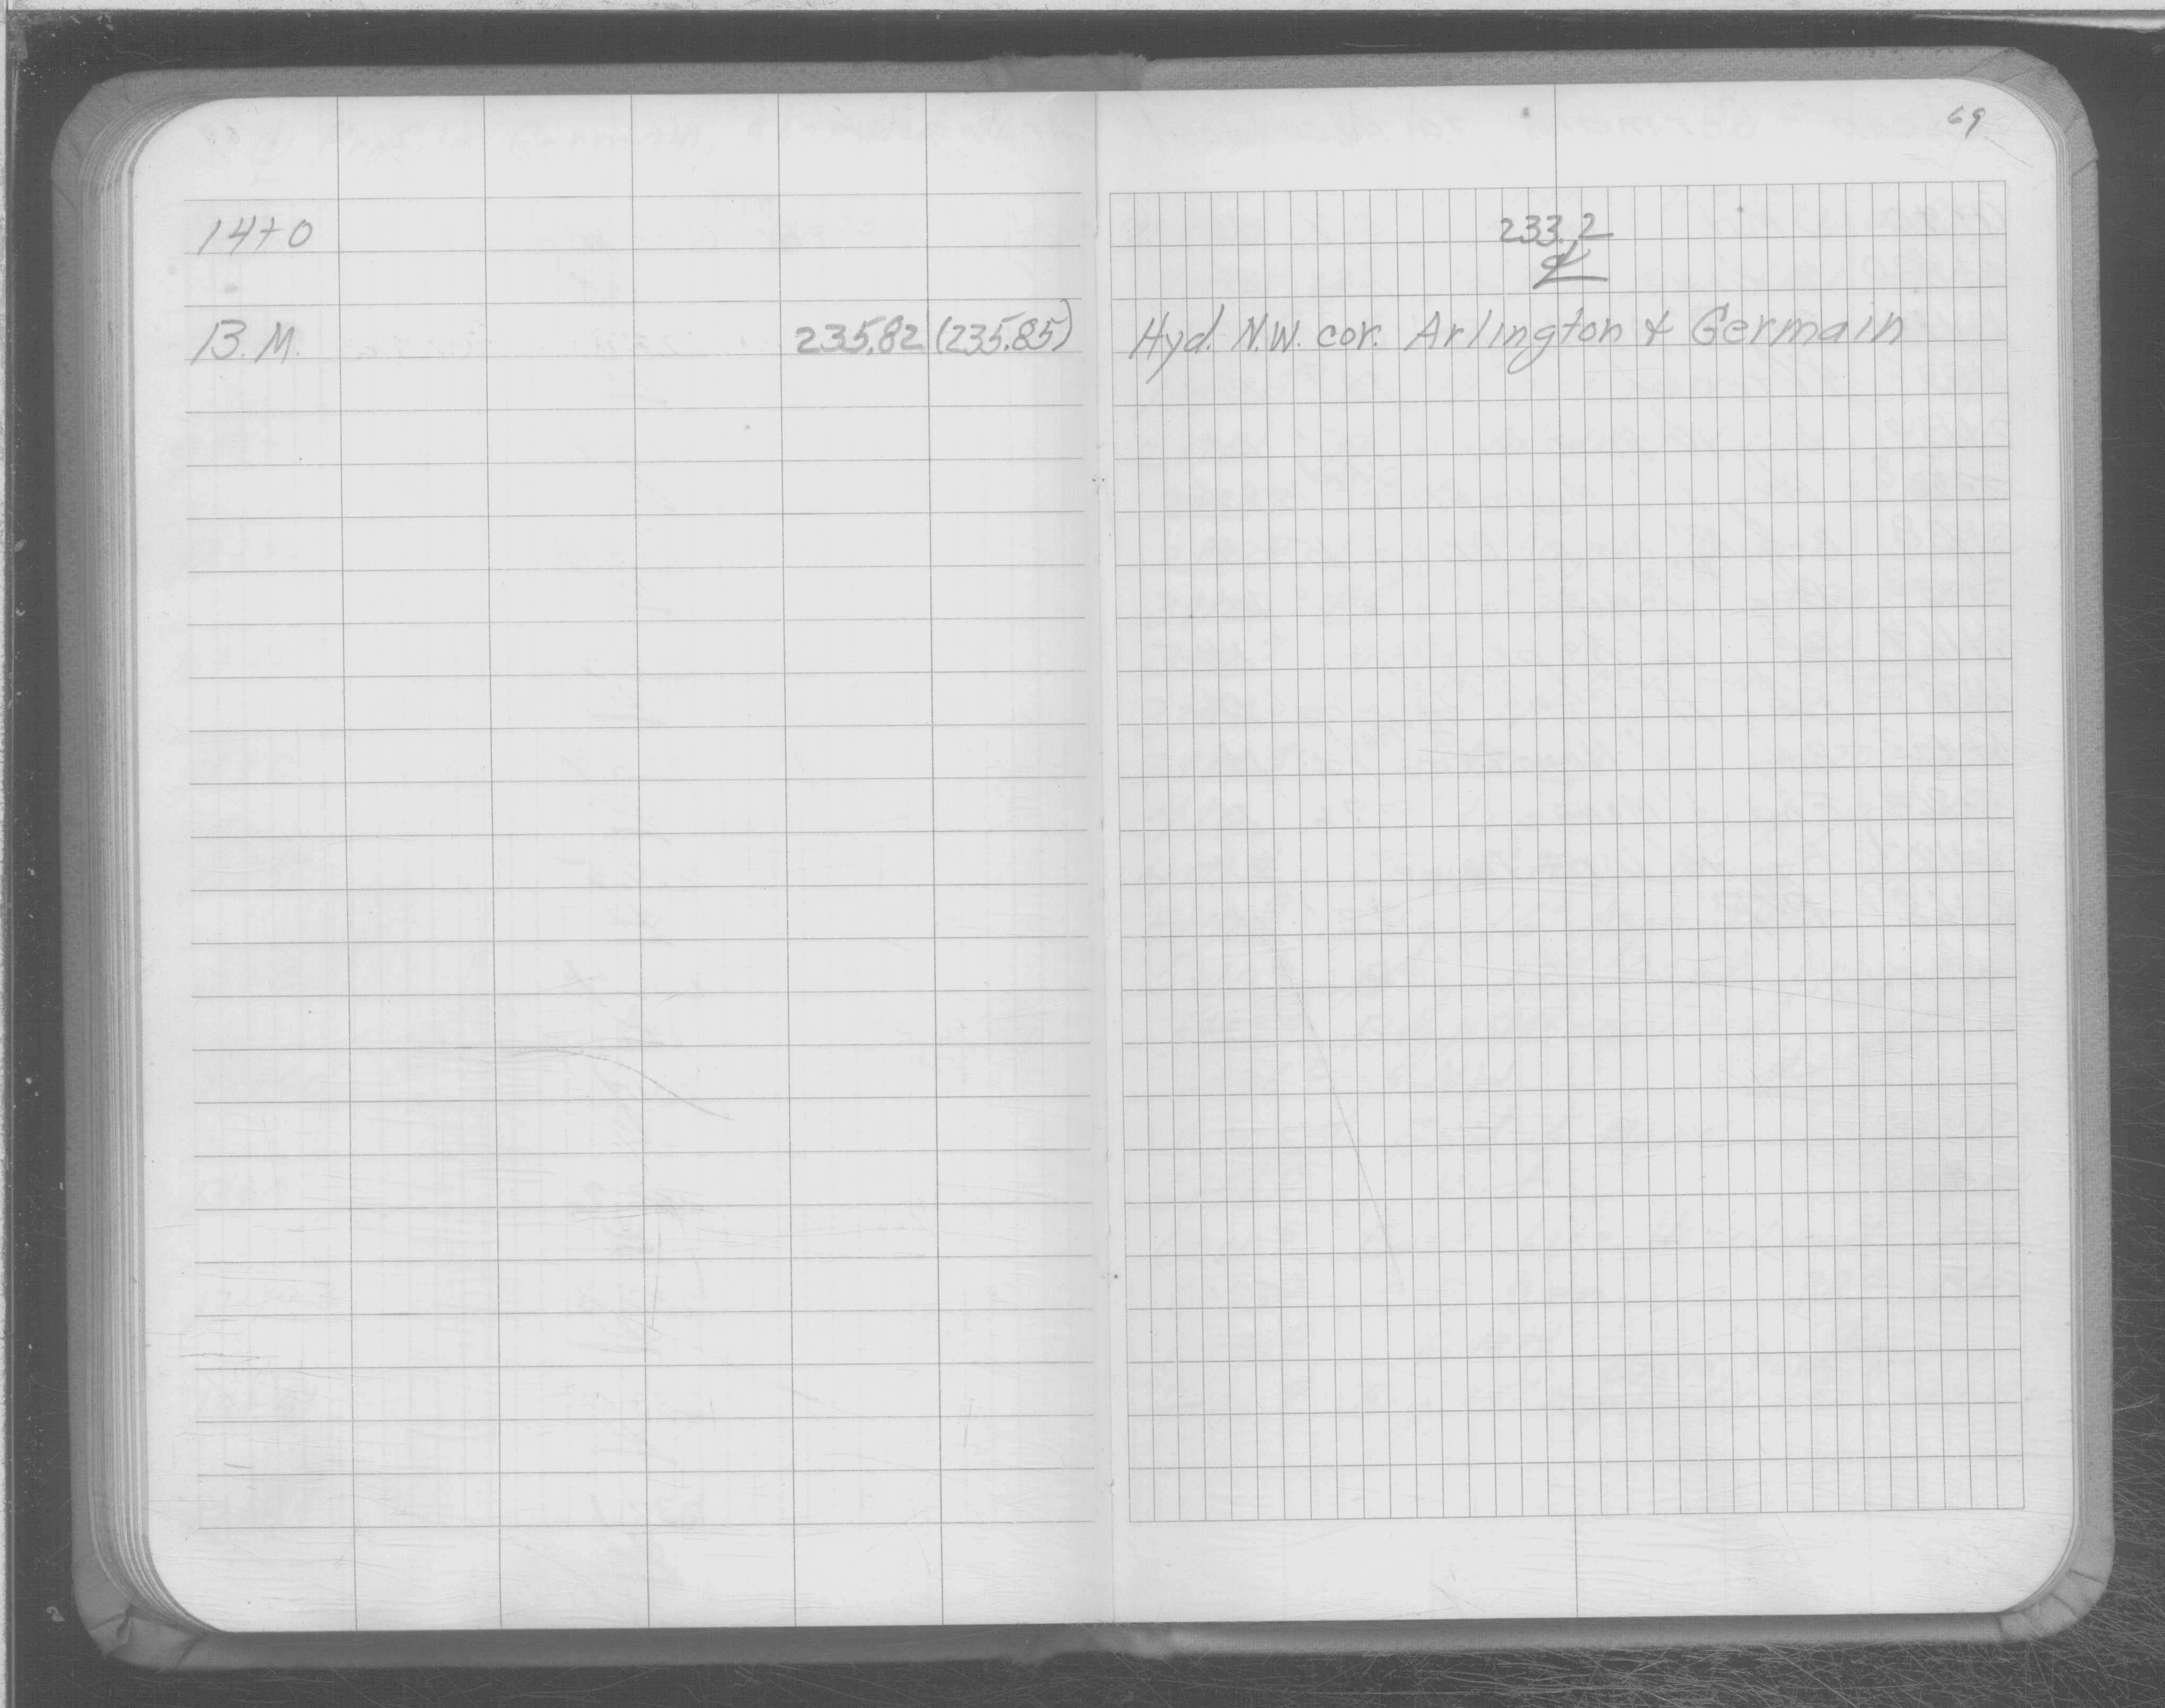 69
14+0 233.2
℄
B.M. 235.82 (235.85) Hyd. N.W. cor. Arlington & Germain